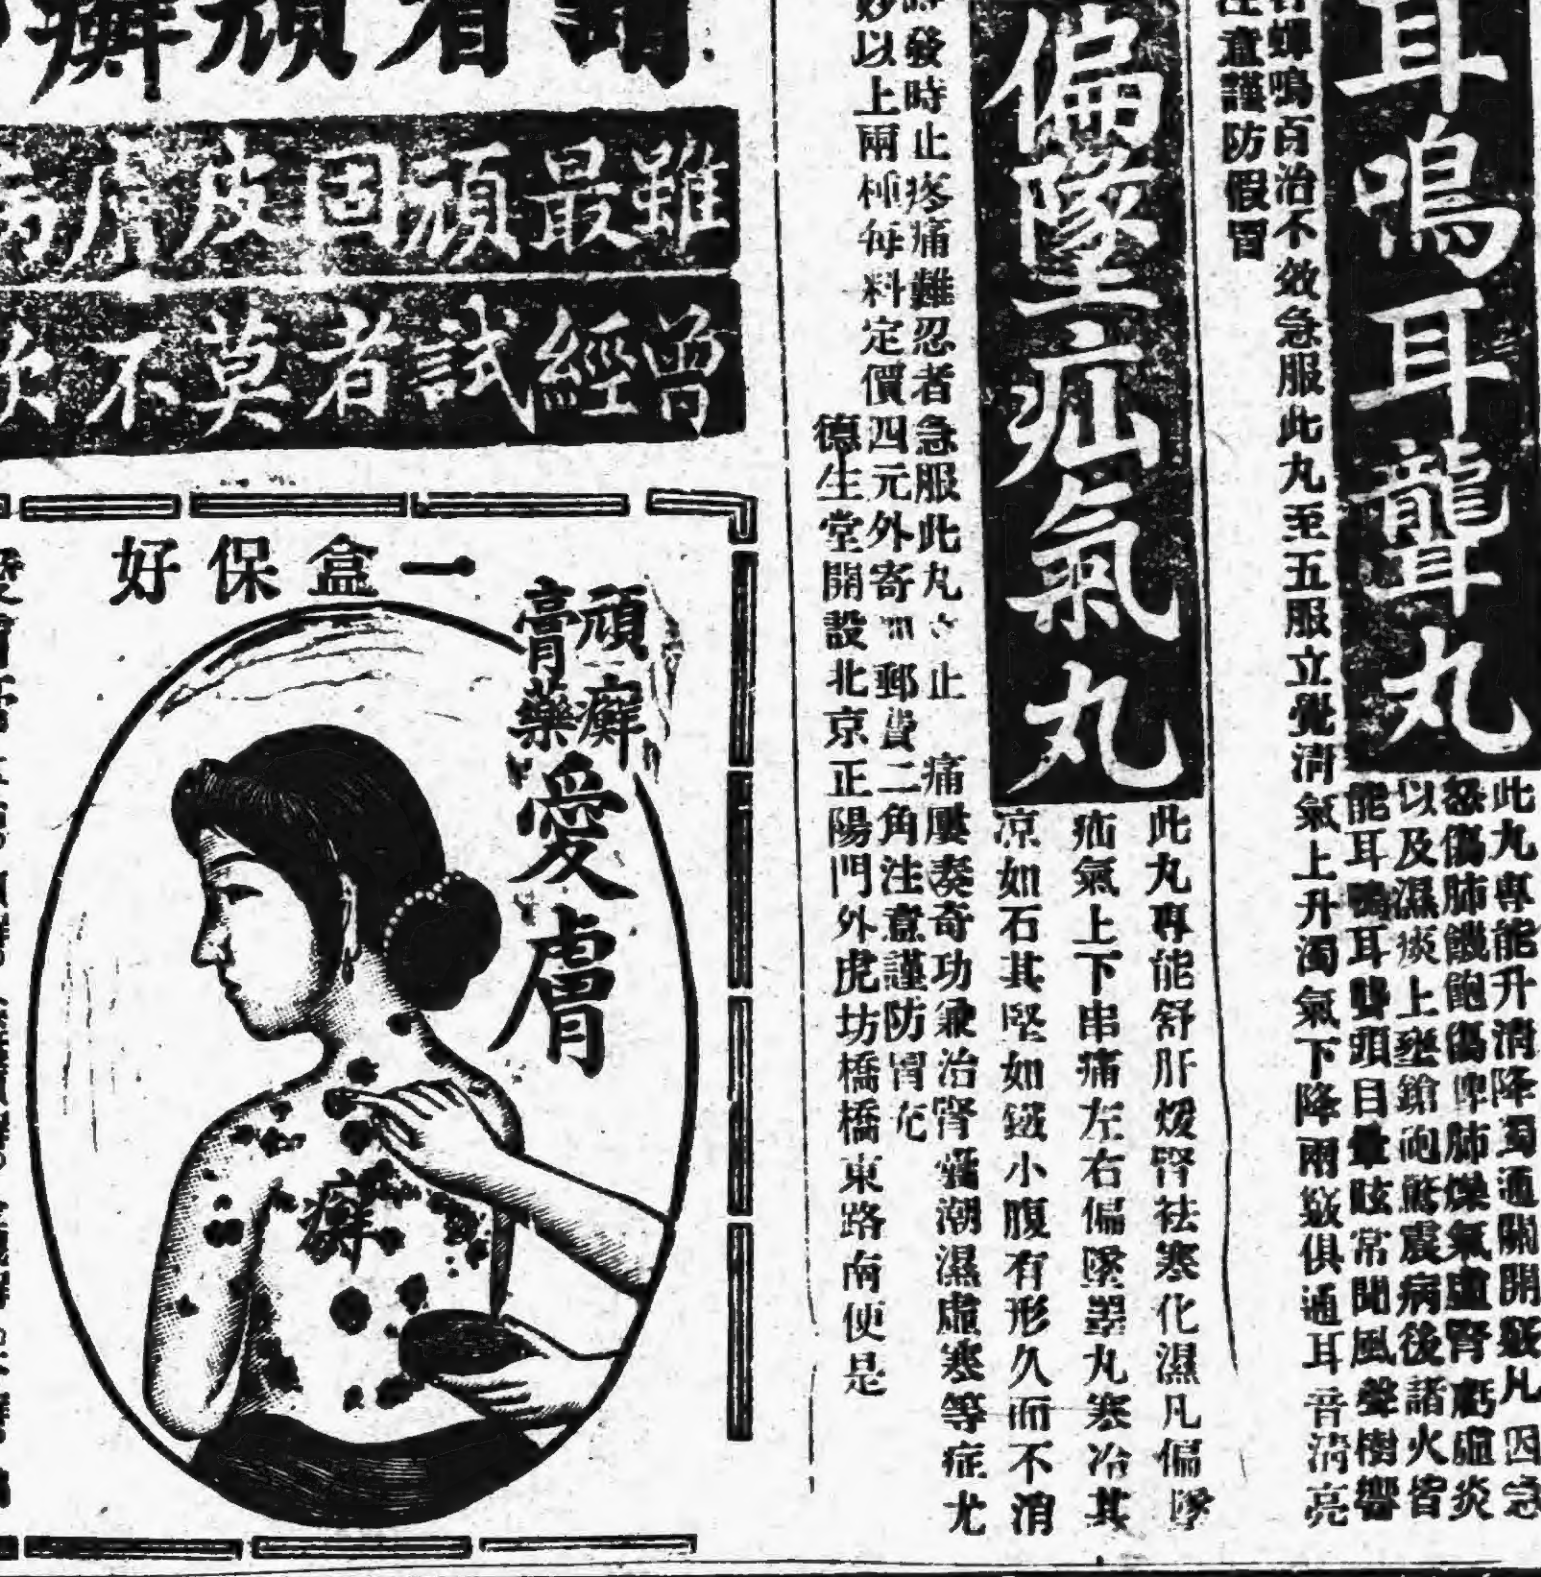 耳鳴耳聾丸
此丸專能升清降濁通關開竅凡因急
怒傷肺饑飽傷脾肺燥氣虛腎虧虛炎
以及濕痰上壅鎗砲驚震病後諸火皆
能耳鳴耳聾頭目暈眩常聞風聲樹響
蟬鳴百治不效急服此丸至五服立覺清氣上升濁氣下降兩竅俱通耳音清亮
注意謹防假冒
偏墜疝氣丸
此丸專能舒肝煖腎祛寒化濕凡偏墜
疝氣上下串痛左右偏墜睪丸寒冷其
凉如石其堅如鐵小腹有形久而不消
時發時止疼痛難忍者急服此丸立止痛屢奏奇功兼治腎囊潮濕虛寒等症尤
妙以上兩種每料定價四元外寄加郵費二角注意謹防冒充
德生堂開設北京正陽門外虎坊橋橋東路南便是
者頑癬
雖最頑固皮膚病
曾經試者莫不
一盒保好
頑癬
膏藥
愛膚
癬